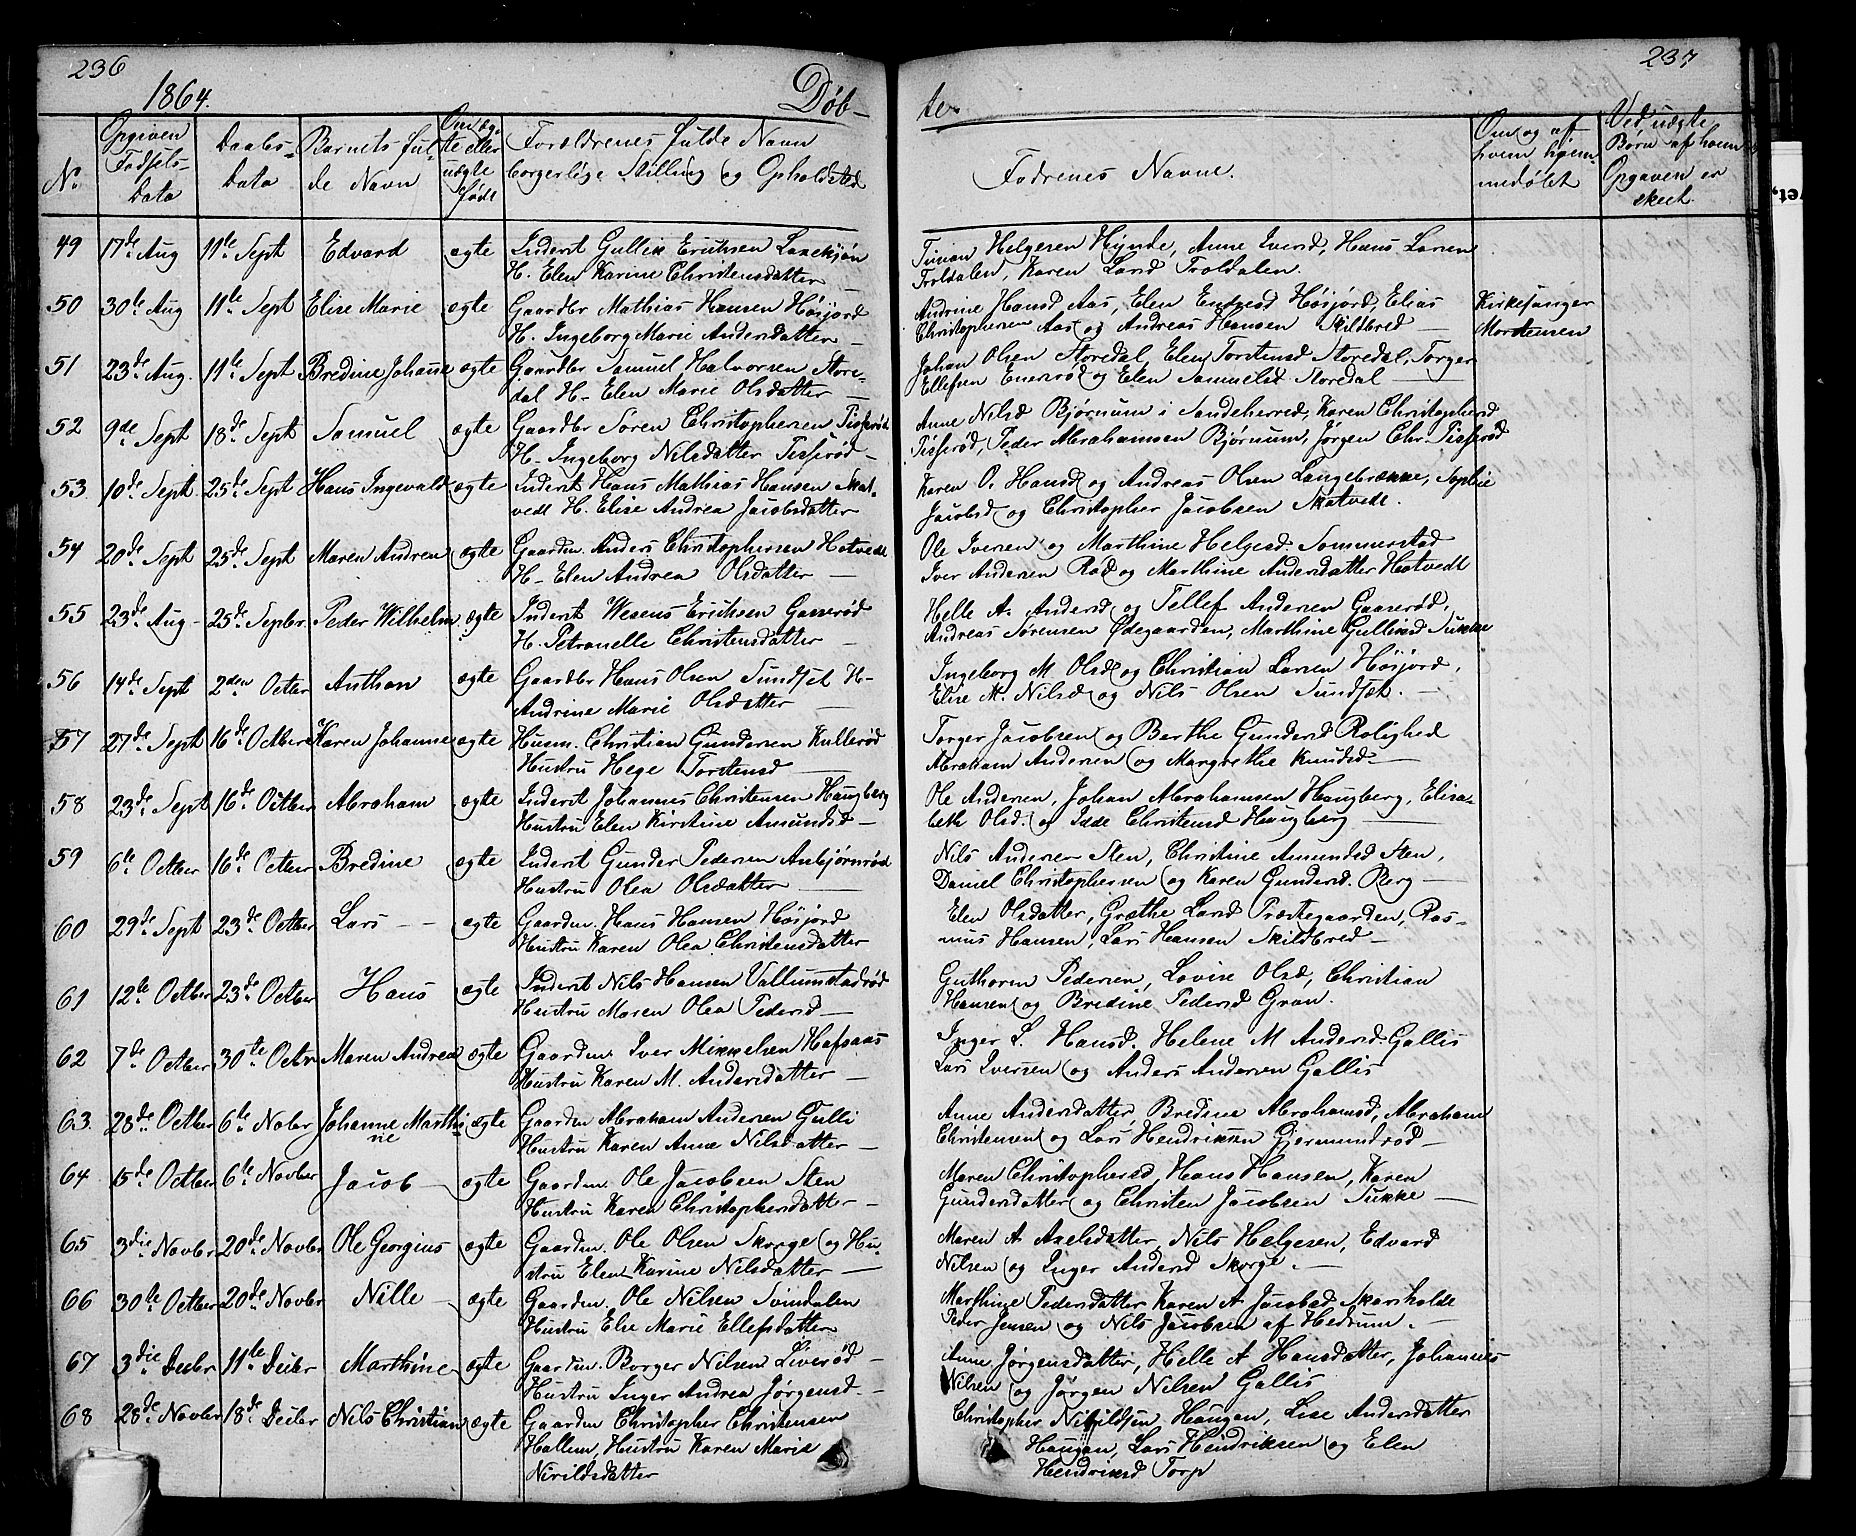 236
1864.
Døb-
No
Opgiven Fødsels-Data
Daabs-Data
Barnets ful-de Navn
Om ægte eller uægte født
Forældrenes fulde Navn borgerlige Stilling og Opholdsted
49 17de Aug 11te Sept Edvard ægte Inderst Gullik Erichsen
H. Elen Karine Christensdatter —
50 30te Aug 11te Sept Elise Marie ægte Gaardbr Mathias Hansen Høsjord
H. Ingeborg Marie Andersdatter —
51 23de Aug. 11te Sept Bredine Johanne ægte Gaardbr Samuel Halvorsen Store-
dal H- Elen Marie Olsdatter —
52 9de Sept 18de Sept Samuel ægte Gaardbr Søren Christophersen Tisserød
H- Ingeborg Nilsdatter Tisserød —
53. 10de Sept 25de Sept Hans Ingevald ægte Inderst Hans Mathias Hansen Skat-
vedt H. Elise Andrea Jacobsdatter
54 20de Sept 25de Sept Maren Andrea ægte Gaardm. Anders Christophersen Hotvedt
H- Elen Andrea Olsdatter —
55 23de Aug- 25de Sepbr. Peder Wilhelm ægte Inderst Wesens Erichsen Gasserød
H. Petronelle Christensdatter —
56 14de Sept 2den Octbr Anthon ægte Gaardbr Hans Olsen Sundset H-
Andrine Marie Olsdatter —
57 27de Sept 16de Octber Karen Johanne ægte Husm. Christian Gundersen Kullerød
Hustru Hege Torstensd —
58 23de Sept 16de Octber Abraham ægte Inderst Johannes Christensen Haugberg
Hustru Elen Kirstine Amundsd —
59 6te Octber 16de Octber Bredine ægte Inderst Gunder Pedersen Anbjørnrød
Hustru Olea Olsdatter —
60 29de Sept 23de Octber Lars - - ægte Gaardm. Hans Hansen Høsjord
Hustru Karen Olea Christensdatter
61 12te Octber 23de Octber Hans ægte Inderst Nils Hansen Vallumstadrød
Hustru Maren Olea Pedersd —
62 7de Octber 30te Octbr Maren Andrea ægte Gaardm. Iver Mikkelsen Hafsaas
Hustru Karen M. Andersdatter —
63. 28de Octber 6te Nobr Johanne Marthi-
ne ægte Gaardm Abraham Andersen Gulli
Hustru Karen Anne Nilsdatter —
64 15de Octber 6te Novber Jacob — ægte Gaardm. Ole Jacobsen Sten
Hustru Karen Christophersdatter —
65 3die Novbr 20de Novbr Ole Georgius ægte Gaardm. Ole Olsen Skorge og Hu-
stru Elen Karine Nilsdatter —
66 30te Octber 20de Novbr Nille ægte Gaardm. Ole Nilsen Svindalen
Hustru Else Marie Ellefsdatter
67 3die Decbr 11te Decbr Marthine ægte Gaardm. Borger Nilsen Liverød —
Hustru Inger Andrea Jørgensd. —
68 28de Novbr 18de Decbr Nils Christian ægte Gaardm Christopher Christensen
Hallem, Hustru Karen Marie
Nirildsdatter
237
te
Fadrenes Navne.
Om og af hvem hjemmedøbt
Ved uægte Børn af hvem Opgaven er skeet.
Helgesen Hynde, Anne Iversd, Hans Larsen
Troldalen, Karen Larsd Troldalen.
Andrine Hansd Aas, Elen Endresd Høsjord, Elias
Christophersen Aas og Andreas Hansen Skildbred —
Kirkesanger
Mortensen
Johan Olsen Storedal, Elen Torstensd Storedal, Torger
Ellefsen Enersrød og Elen Samuelsd Storedal —
Anne Nilsd Bjørnum i Sandeherred, Karen Christophersd
Tisserød, Peder Abrahamsen Bjørnum, Jørgen Chr. Tisserød
Karen O. Hansd og Andreas Olsen Langebrække, Sophie
Jacobsd og Christopher Jacobsen Skatvedt.
Ole Iversen og Marthine Helgesd. Sommerstad
Iver Andersen Rød og Marthine Andersdatter Hotvedt
Helle A. Andersd og Tellef Andersen Gaaserød,
Andreas Sørensen Ødegaarden, Marthine Gulliksd Sukke
Ingeborg M. Olsd og Christian Larsen Høsjord,
Elise M. Nilsd og Nils Olsen Sundset. —
Torger Jacobsen og Berthe Gundersd Rolighed
Abraham Andersen og Margrethe Knudsd —
Ole Andersen, Johan Abrahamsen Haugberg, Elisa-
beth Olsd. og Idde Christensd Haugberg —
Nils Andersen Sten, Christine Amundsd Sten,
Daniel Christophersen og Karen Gundersd. Berg —
Elen Olsdatter, Grethe Larsd Præstegaarden, Ras-
mus Hansen, Lars Hansen Skildbred —
Guthorm Pedersen, Lovise Olsd, Christian
Hansen og Bredine Pedersd Gran.
Inger L. Hansd. Helene M Andersd. Gallis
Lars Iversen og Anders Andersen Gallis
Anne Andersdatter, Bredine Abrahamsd, Abraham
Christensen og Lars Hendriksen Gjermundrød —
Maren Christophersd, Hans Hansen, Karen
Gundersdatter og Christen Jacobsen Sukke —
Maren A Axelsdatter, Nils Helgesen, Edvard
Nilsen og Inger Andersd Skorge. —
Marthine Pedersdatter Karen A Jacobsd Skarsholdt
Peder Jensen og Nils Jacobsen af Hedrum. —
Anne Jørgensdatter, Helle A Hansdatter, Johannes
Nilsen og Jørgen Nilsen Gallis
Christopher Nirildsen Haugan, Lise Andersdatter
Haugan, Lars Hendriksen og Elen
Hendriksd Torp
vet,